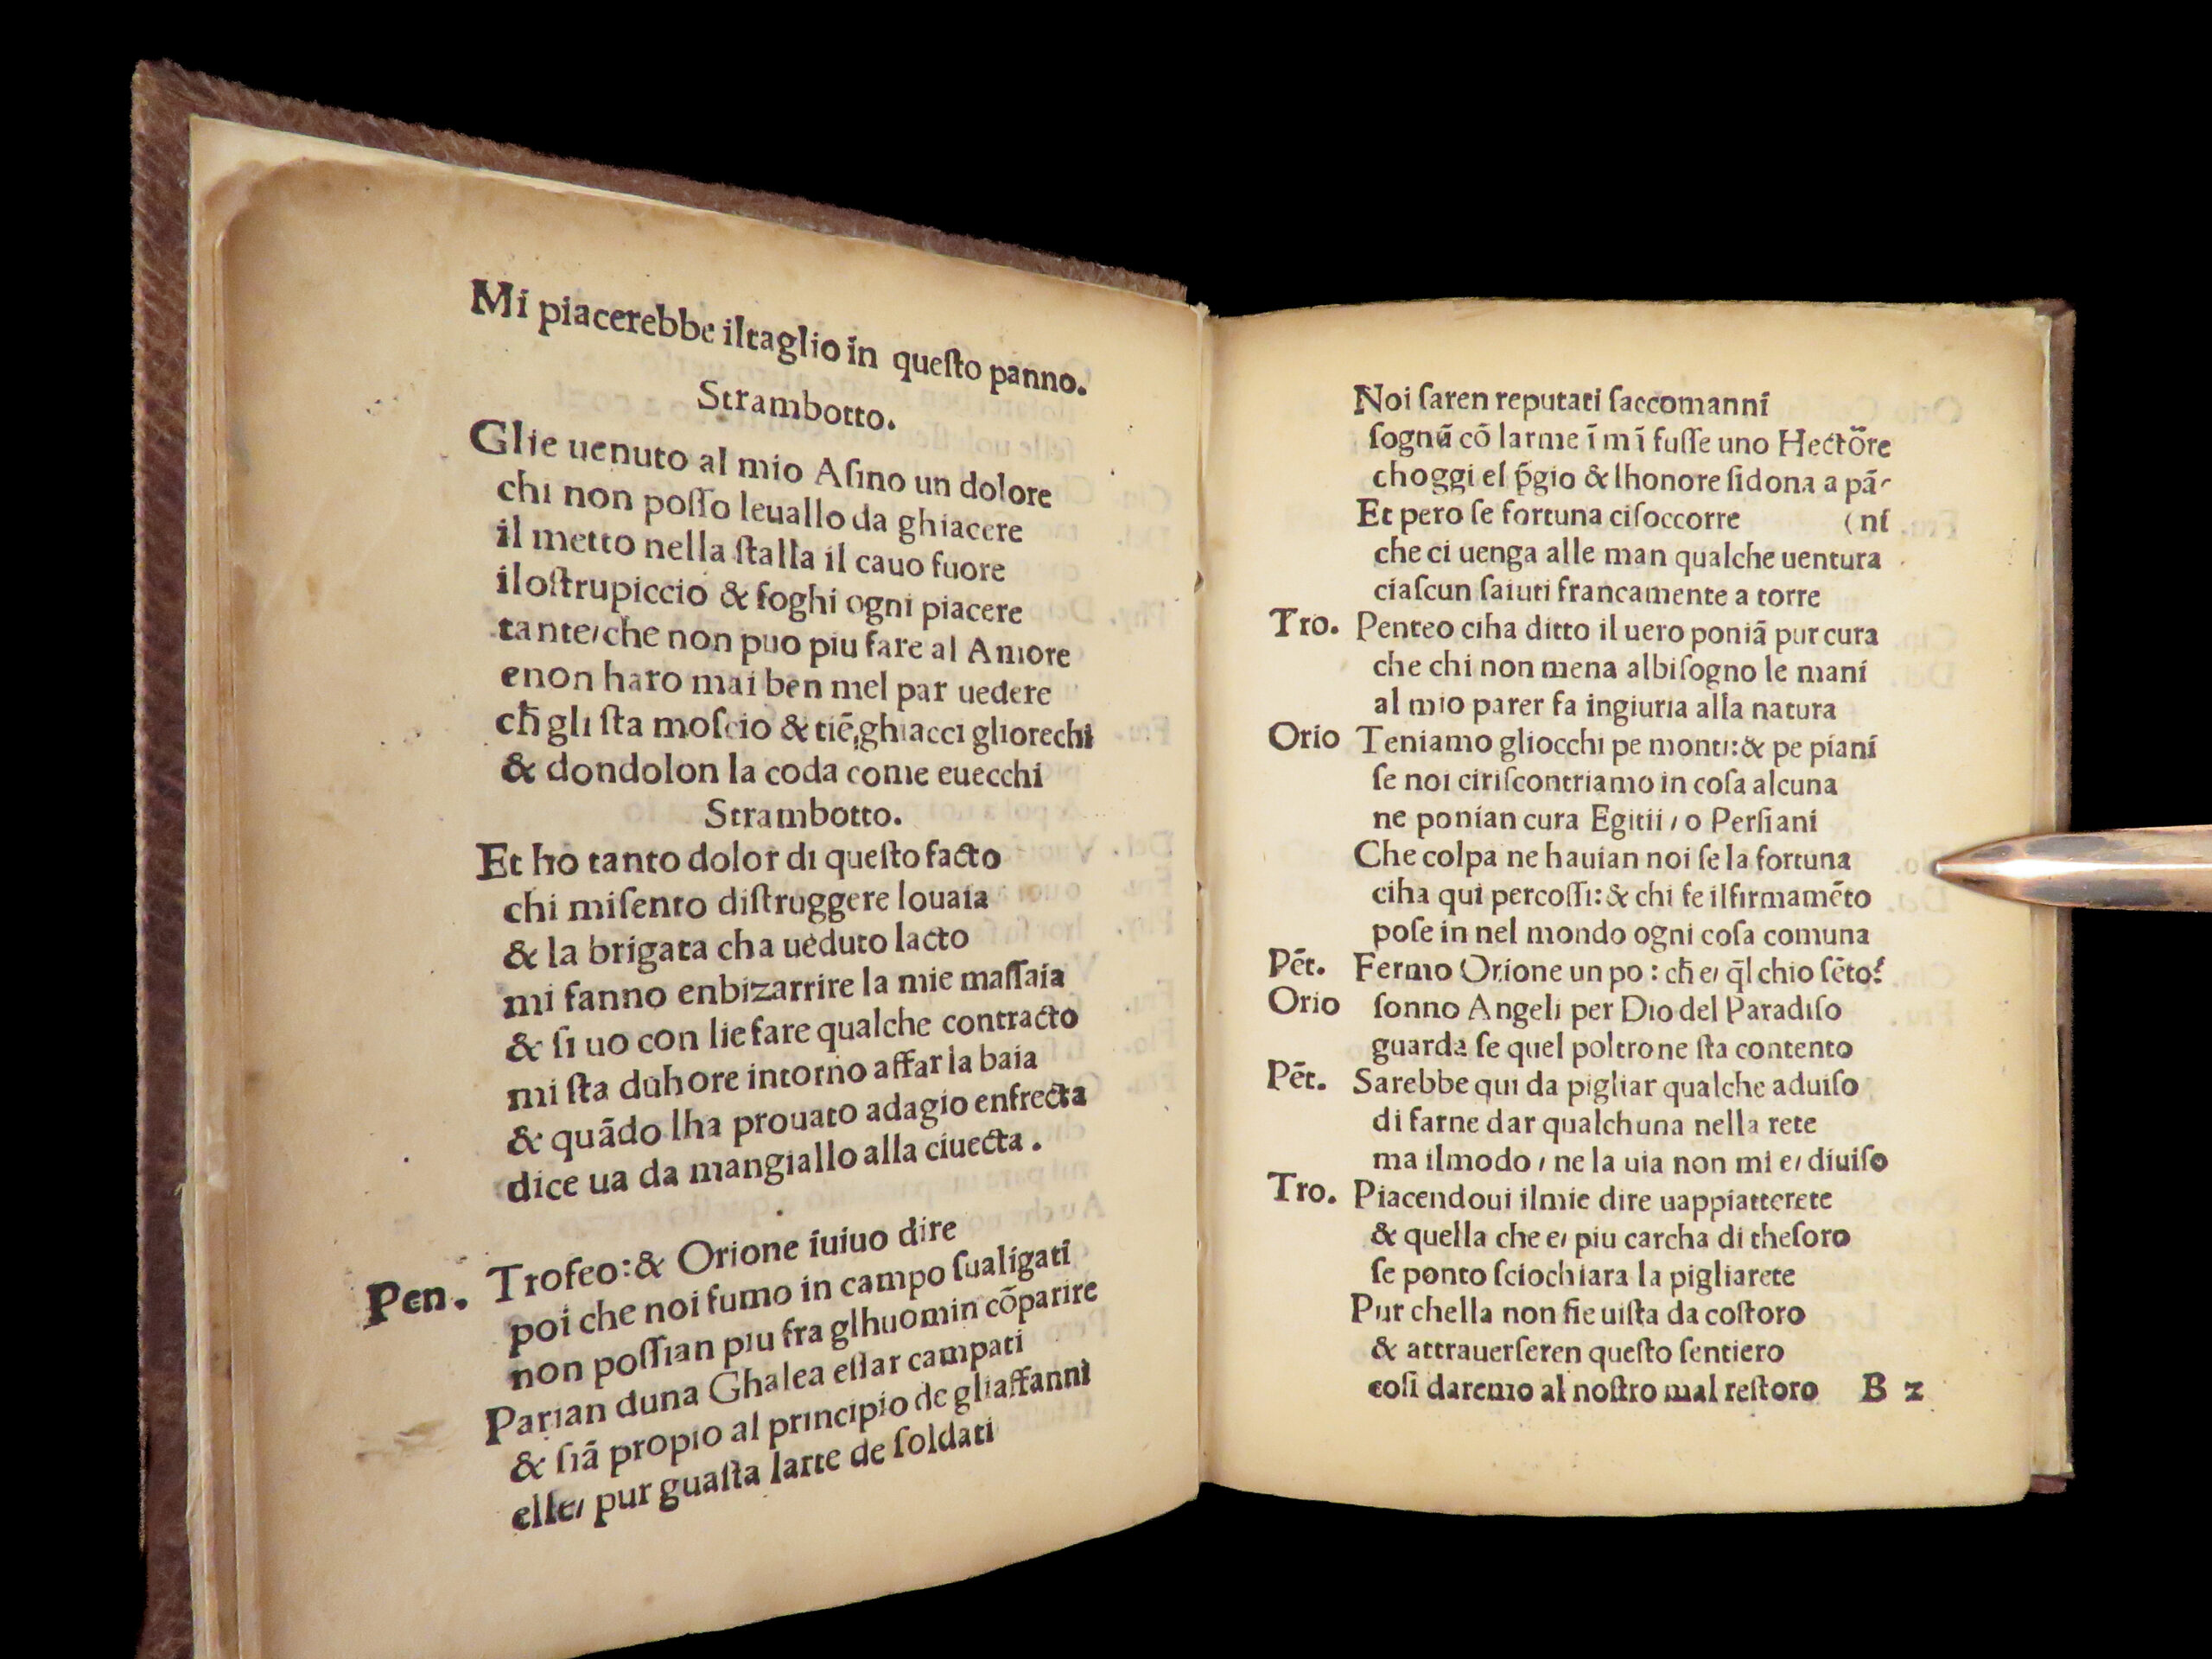 Mi piacerebbe iltaglio in queſto panno.
Strambotto.
Glie uenuto al mio Aſino un dolore
chi non poſſo leuallo da ghiacere
il metto nella ſtalla il cauo fuore
iloſtrupiccio & foghi ogni piacere
tante/che non puo piu fare al Amore
enon haro mai ben mel par uedere
ch̄ gli ſta moſcio & tiē ghiacci gliorechi
& dondolon la coda come euecchi
Strambotto.
Et ho tanto dolor di queſto facto
chi miſento diſtruggere louaia
& la brigata cha ueduto lacto
mi fanno enbizarrire la mie maſſaia
& ſi uo con lie fare qualche contracto
mi ſta duhore intorno affar la baia
& quādo lha prouato adagio enfrecta
dice ua da mangiallo alla ciuecta.
Pen. Trofeo:& Orione iuiuo dire
poi che noi fumo in campo ſualigati
non poſſian piu fra glhuomin cōparire
Parian duna Ghalea eſſar campati
& ſiā propio al principio de gliaffanni
elle/ pur guaſta larte de ſoldati
Noi ſaren reputati ſaccomanni
ſognū cō larme ī mī fuſſe uno Hectore
choggi el p̄gio & lhonore ſidona a pā-
Et pero ſe fortuna ciſoccorre (ni
che ci uenga alle man qualche uentura
ciaſcun ſaiuti francamente a torre
Tro. Penteo ciha ditto il uero poniā pur cura
che chi non mena albiſogno le mani
al mio parer fa ingiuria alla natura
Orio Teniamo gliocchi pe monti:& pe piani
ſe noi ciriſcontriamo in coſa alcuna
ne ponian cura Egitii / o Perſiani
Che colpa ne hauian noi ſe la fortuna
ciha qui percoſſi:& chi fe ilfirmamēto
poſe in nel mondo ogni coſa comuna
Pēt. Fermo Orione un po : ch̄ e/ q̄l chio ſēto?
Orio ſonno Angeli per Dio del Paradiſo
guarda ſe quel poltrone ſta contento
Pēt. Sarebbe qui da pigliar qualche aduiſo
di farne dar qualchuna nella rete
ma ilmodo / ne la uia non mi e/ diuiſo
Tro. Piacendoui ilmie dire uappiatterete
& quella che e/ piu carcha di theſoro
ſe ponto ſciochiara la pigliarete
Pur chella non fie uiſta da coſtoro
& attrauerſeren queſto ſentiero
coſi daremo al noſtro mal reſtoro B 2